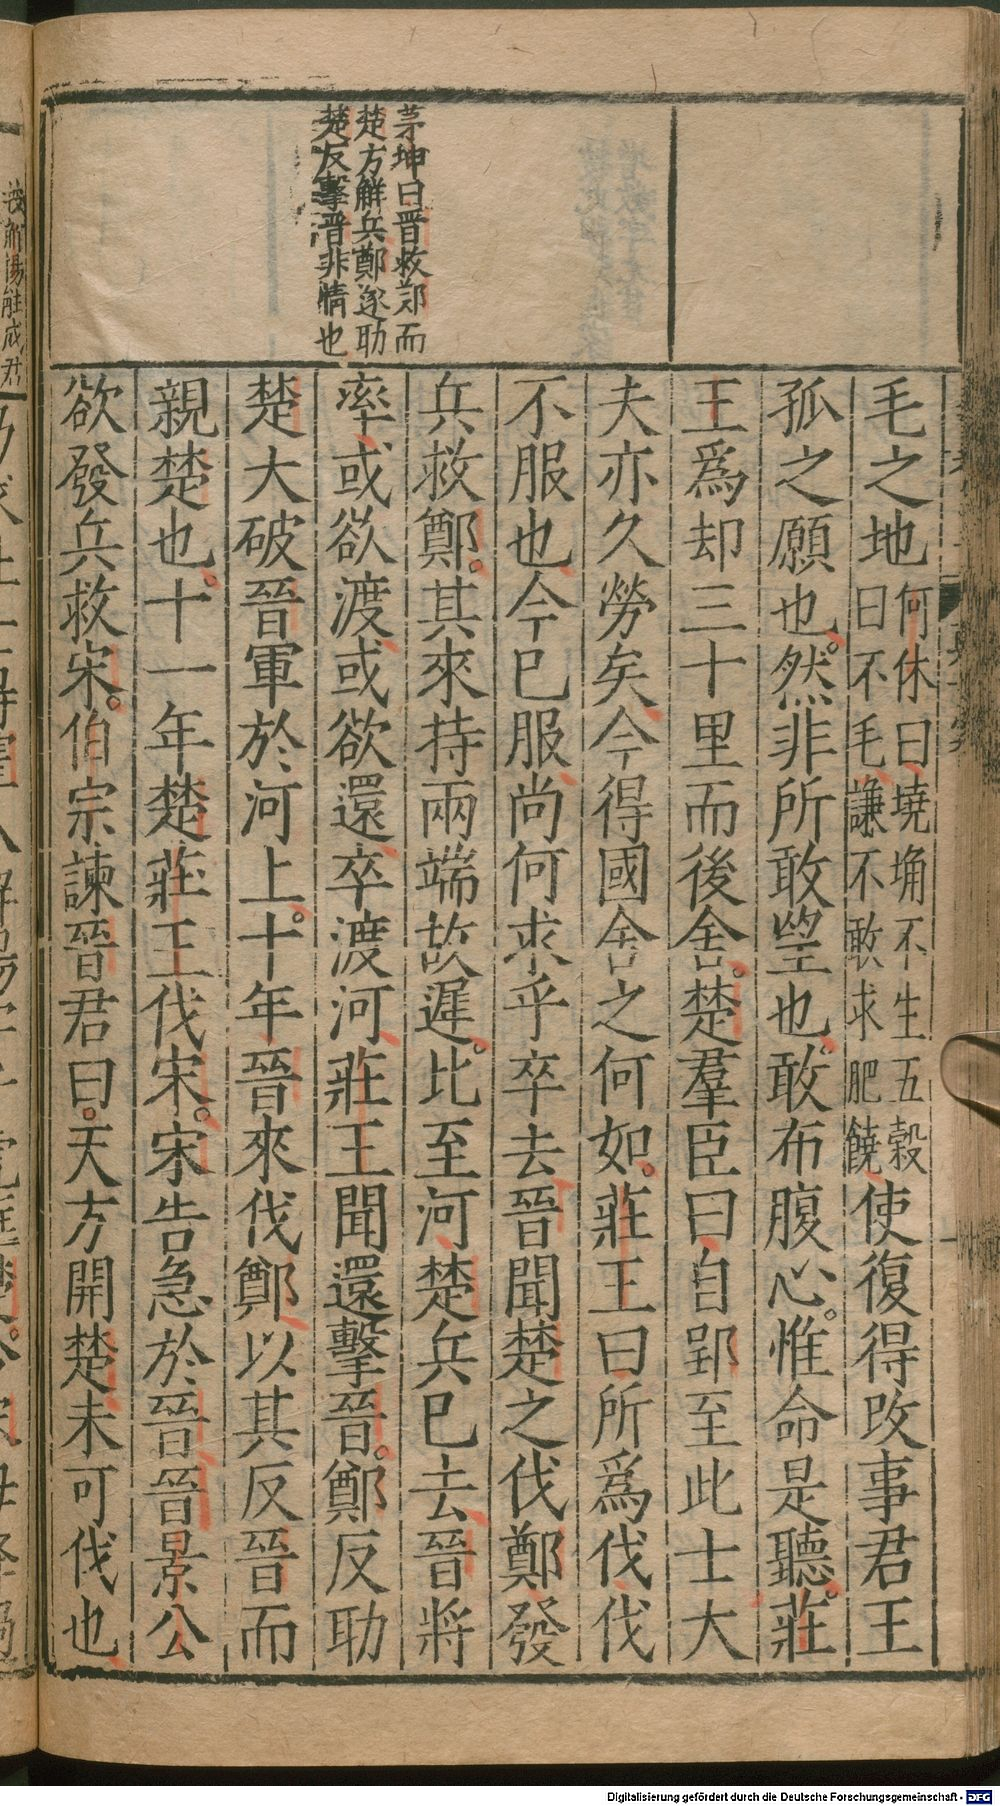 茅坤曰晋救郑而
楚方觧兵鄭遂助
楚反擊晋非情也
毛之地何休曰墝埆不生五穀
曰不毛謙不敢求肥饒使復得改事君王
孤之願也。然非所敢望也。敢布腹心。惟命是聽。莊
王爲却三十里而後舍。楚羣臣曰自郢至此士大
夫亦久勞矣今得國舍之何如。莊王曰所爲伐伐
不服也今已服尚何求乎卒去晉聞楚之伐鄭發
兵救鄭。其來持兩端故遲。比至河楚兵已去晉將
率或欲渡或欲還卒渡河莊王聞還擊晉。鄭反助
楚大破晉軍於河上。十年晉來伐鄭以其反晉而
親楚也。十一年楚莊王伐宋。宋告急於晉晉景公
欲發兵救宋。伯宗諫晉君曰。天方開楚未可伐也
Digitalisierung gefördert durch die Deutsche Forschungsgemeinschaft - DFG